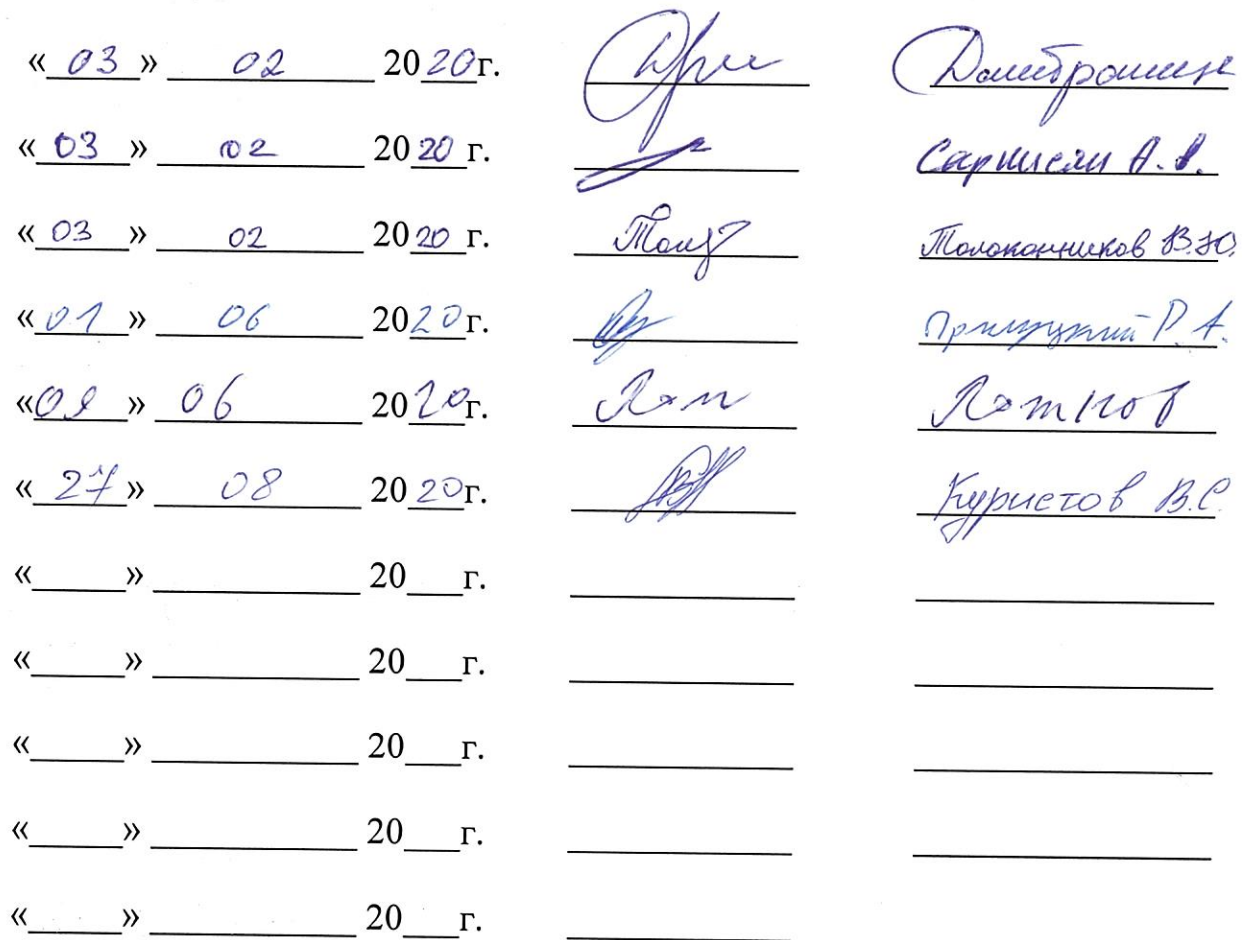 «03» 02 2020г.
«03» 02 2020 г. Саркисян А.
«03» 02 2020 г. Толоконников В.Ю.
«01» 06 2020г. Прилуцкий Р. А.
« » 06 2020г.
«27» 08 2020г. Куристов В.С.
«_____» ___________ 20___г.
«_____» ___________ 20___г.
«_____» ___________ 20___г.
«_____» ___________ 20___г.
«_____» ___________ 20___г.